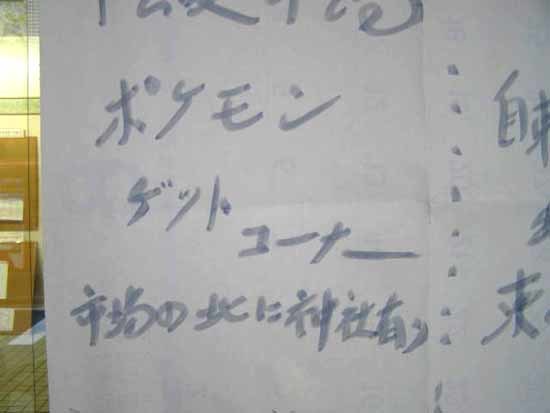 ポケモン
ゲット
コーナー
市場の北に神社有り
自車
東